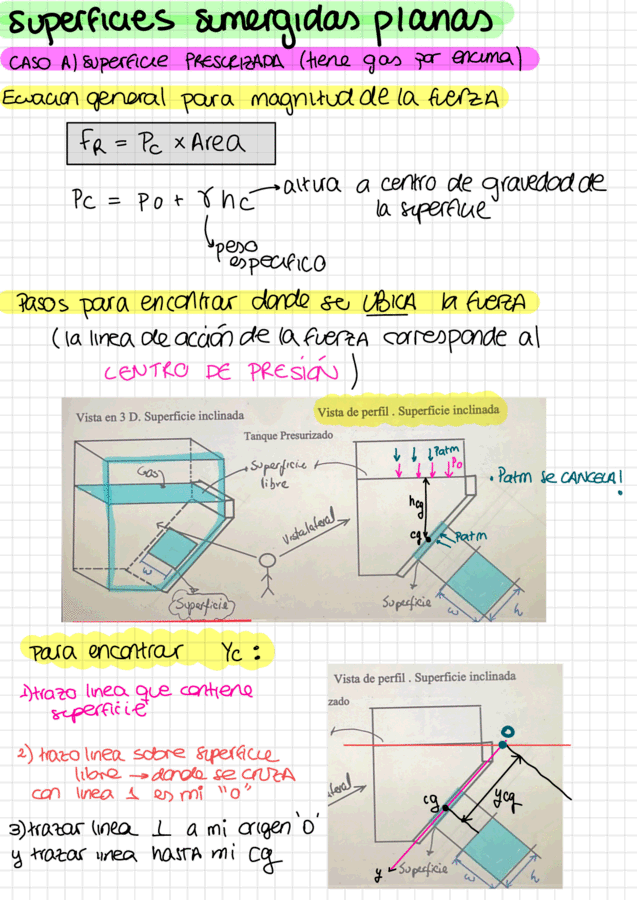 superficies sumergidas planas
CASO A) SUPERFICIE PRESURIZADA (tiene gas por encima)
Ecuacion general para magnitud de la fuerza
FR = Pc × Area
Pc = Po + γ hc → altura a centro de gravedad de
la superficie
peso
especifico
Pasos para encontrar donde se UBICA la fuerza
(la linea de acción de la fuerza corresponde al
CENTRO DE PRESIÓN)
Vista en 3 D. Superficie inclinada
Vista de perfil . Superficie inclinada
Tanque Presurizado
Gas
Superficie
libre
Patm
Po
. Patm se CANCELA!
hcg
cg
Patm
Vista lateral
w
Superficie
Superficie
w
h
para encontrar Yc :
1) trazo linea que contiene
superficie
2) trazo linea sobre superficie
libre → donde se cruza
con linea 1 es mi "O"
3) trazar linea ⊥ a mi origen 'O'
y trazar linea HASTA mi cg
Vista de perfil . Superficie inclinada
zado
O
cg
ycg
y
Superficie
w
h